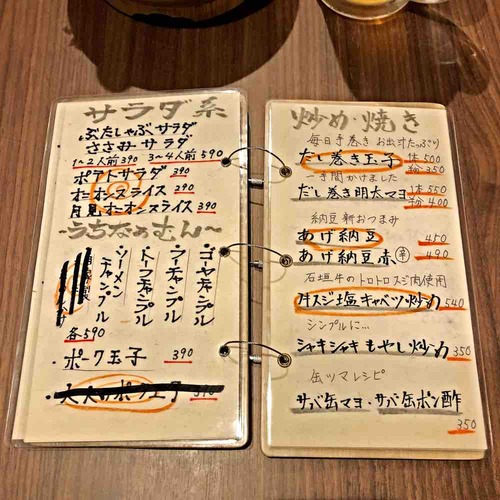 サラダ系
ぶたしゃぶサラダ
ささみサラダ
1〜2人前390 3〜4人前590
ポテトサラダ 390
オニオンスライス
月見オニオンスライス 390
〜うちなぁむん〜
ゴーヤチャンプル
フーチャンプル
トーフチャンプル
ソーメンチャンプル
各590
・ポーク玉子 390
炒め・焼き
毎日手巻き お出汁たっぷり
だし巻き玉子 1本500
350
一手間かけました
だし巻き明太マヨ 1本550
400
納豆新おつまみ
あげ納豆 450
あげ納豆赤 辛 490
石垣牛のトロトロスジ肉使用
牛スジ塩キャベツ炒め 540
シンプルに…
シャキシャキもやし炒め 350
缶ツマレシピ
サバ缶マヨ・サバ缶ポン酢
350